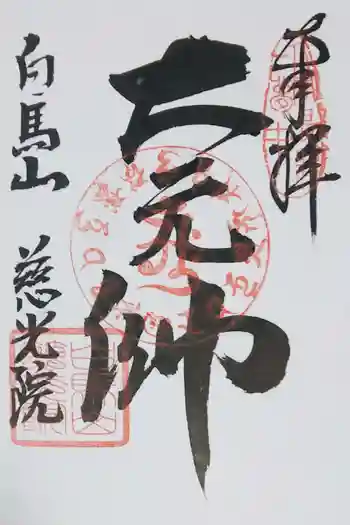 奉拝
大元帥
白馬山
慈光院